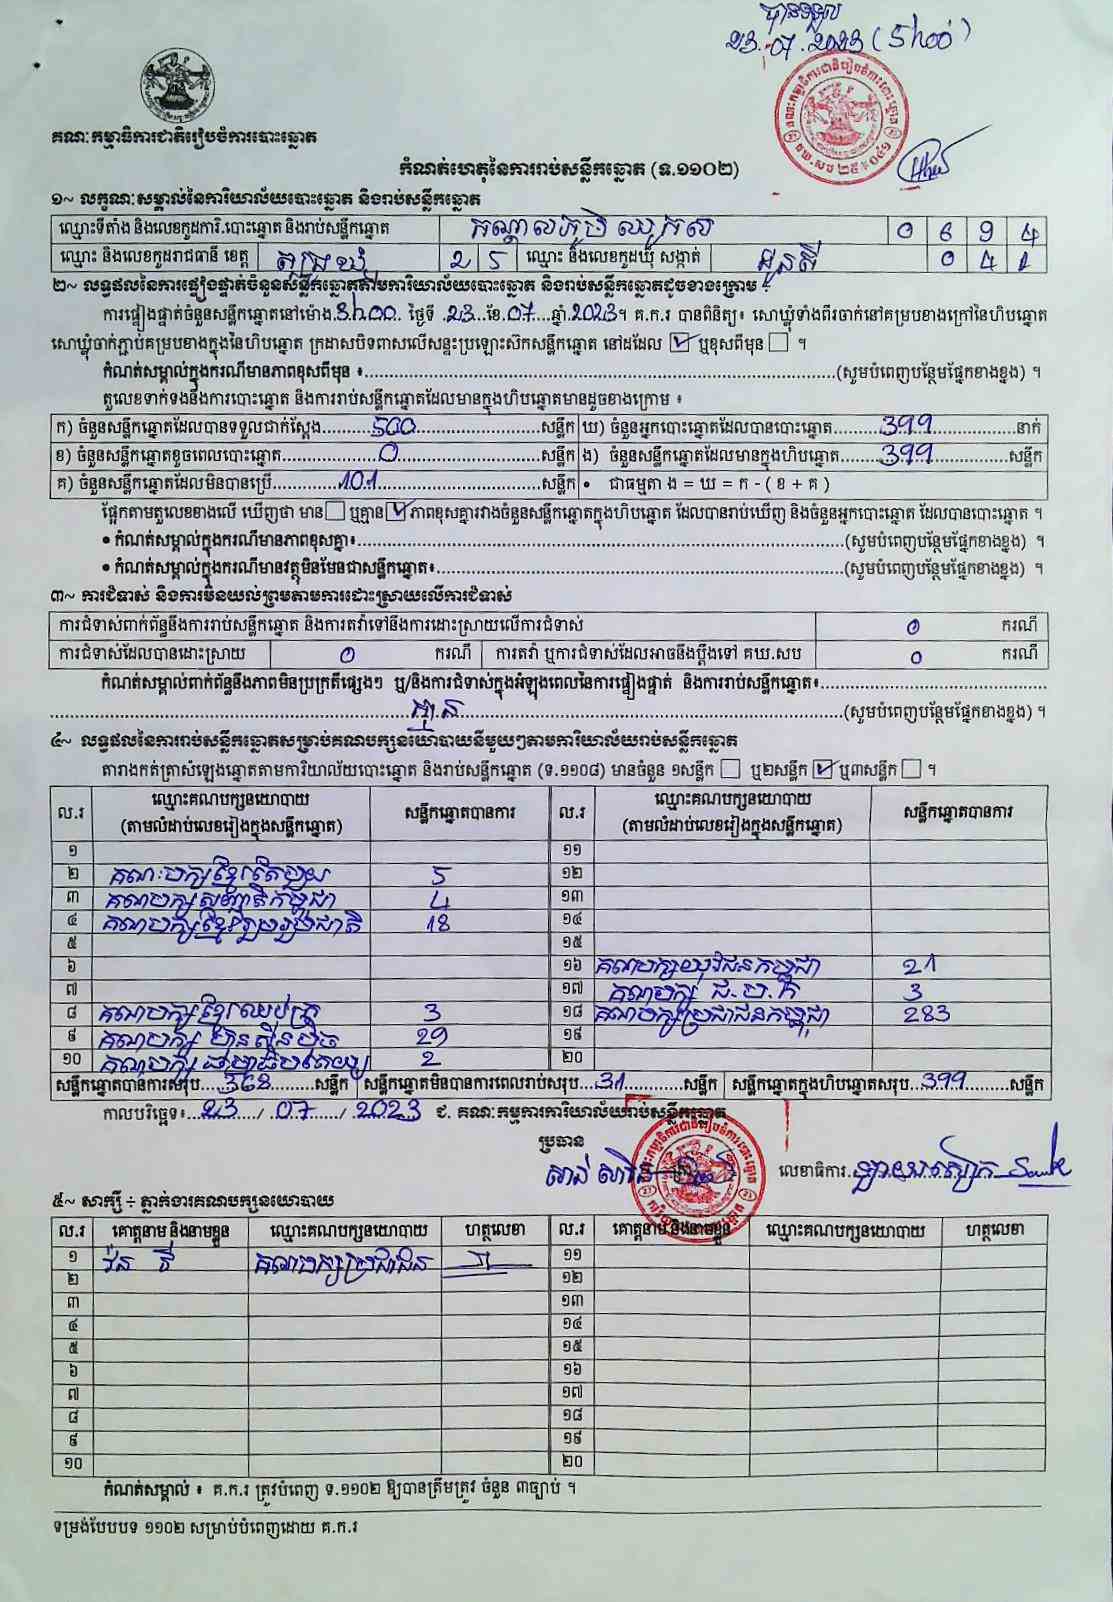 បានទទួល
23.07.2023 (5h00)
គណៈកម្មាធិការជាតិរៀបចំការបោះឆ្នោត
កំណត់ហេតុនៃការរាប់សន្លឹកឆ្នោត (ទ.១១០២)
១~ លក្ខណៈសម្គាល់នៃការិយាល័យបោះឆ្នោត និងរាប់សន្លឹកឆ្នោត
ឈ្មោះទីតាំង និងលេខកូដការិ.បោះឆ្នោត និងរាប់សន្លឹកឆ្នោត 0 6 9 4
ឈ្មោះ និងលេខកូដរាជធានី ខេត្ត ត្បូងឃ្មុំ 2 5 ឈ្មោះ និងលេខកូដឃុំ សង្កាត់ ដូនតី 0 4 1
២~ លទ្ធផលនៃការផ្ទៀងផ្ទាត់ចំនួនសន្លឹកឆ្នោតតាមការិយាល័យបោះឆ្នោត និងរាប់សន្លឹកឆ្នោតដូចខាងក្រោម ៖
ការផ្ទៀងផ្ទាត់ចំនួនសន្លឹកឆ្នោតនៅម៉ោង 3h00 ថ្ងៃទី 23 ខែ 07 ឆ្នាំ 2023។ គ.ក.រ បានពិនិត្យ៖ សោឃ្លុំទាំងពីរចាក់នៅគម្របខាងក្រៅនៃហិបឆ្នោត
សោឃ្លុំចាក់ភ្ជាប់គម្របខាងក្នុងនៃហិបឆ្នោត ក្រដាសបិទពាសលើសន្ទះប្រឡោះស៊កសន្លឹកឆ្នោត នៅដដែល ☑ ឬខុសពីមុន ☐ ។
កំណត់សម្គាល់ក្នុងករណីមានភាពខុសពីមុន ៖ (សូមបំពេញបន្ថែមផ្នែកខាងខ្នង) ។
តួលេខទាក់ទងនឹងការបោះឆ្នោត និងការរាប់សន្លឹកឆ្នោតដែលមានក្នុងហិបឆ្នោតមានដូចខាងក្រោម ៖
ក) ចំនួនសន្លឹកឆ្នោតដែលបានទទួលជាក់ស្តែង 500 សន្លឹក ឃ) ចំនួនអ្នកបោះឆ្នោតដែលបានបោះឆ្នោត 399 នាក់
ខ) ចំនួនសន្លឹកឆ្នោតខូចពេលបោះឆ្នោត 0 សន្លឹក ង) ចំនួនសន្លឹកឆ្នោតដែលមានក្នុងហិបឆ្នោត 399 សន្លឹក
គ) ចំនួនសន្លឹកឆ្នោតដែលមិនបានប្រើ 101 សន្លឹក • ជាធម្មតា ង = ឃ = ក - ( ខ + គ )
ផ្អែកតាមតួលេខខាងលើ ឃើញថា មាន ☐ ឬគ្មាន ☑ ភាពខុសគ្នារវាងចំនួនសន្លឹកឆ្នោតក្នុងហិបឆ្នោត ដែលបានរាប់ឃើញ និងចំនួនអ្នកបោះឆ្នោត ដែលបានបោះឆ្នោត ។
• កំណត់សម្គាល់ក្នុងករណីមានភាពខុសគ្នា៖ (សូមបំពេញបន្ថែមផ្នែកខាងខ្នង) ។
• កំណត់សម្គាល់ក្នុងករណីមានវត្ថុមិនមែនជាសន្លឹកឆ្នោត៖ (សូមបំពេញបន្ថែមផ្នែកខាងខ្នង) ។
៣~ ការជំទាស់ និងការមិនយល់ព្រមតាមការដោះស្រាយលើការជំទាស់
ការជំទាស់ពាក់ព័ន្ធនឹងការរាប់សន្លឹកឆ្នោត និងការតវ៉ាទៅនឹងការដោះស្រាយលើការជំទាស់ 0 ករណី
ការជំទាស់ដែលបានដោះស្រាយ 0 ករណី ការតវ៉ា ឬការជំទាស់ដែលអាចនឹងប្តឹងទៅ គឃ.សប 0 ករណី
កំណត់សម្គាល់ពាក់ព័ន្ធនឹងភាពមិនប្រក្រតីផ្សេងៗ ឬ/និងការជំទាស់ក្នុងអំឡុងពេលនៃការផ្ទៀងផ្ទាត់ និងការរាប់សន្លឹកឆ្នោត៖
គ្មាន (សូមបំពេញបន្ថែមផ្នែកខាងខ្នង) ។
៤~ លទ្ធផលនៃការរាប់សន្លឹកឆ្នោតសម្រាប់គណបក្សនយោបាយនីមួយៗតាមការិយាល័យរាប់សន្លឹកឆ្នោត
តារាងកត់ត្រាសំឡេងឆ្នោតតាមការិយាល័យបោះឆ្នោត និងរាប់សន្លឹកឆ្នោត (ទ.១១០៨) មានចំនួន ១សន្លឹក ☐ ឬ២សន្លឹក ☑ ឬ៣សន្លឹក ☐ ។
ល.រ ឈ្មោះគណបក្សនយោបាយ (តាមលំដាប់លេខរៀងក្នុងសន្លឹកឆ្នោត) សន្លឹកឆ្នោតបានការ ល.រ ឈ្មោះគណបក្សនយោបាយ (តាមលំដាប់លេខរៀងក្នុងសន្លឹកឆ្នោត) សន្លឹកឆ្នោតបានការ
១ ១១
២ គណៈបក្សខ្មែរតែមួយ 5 ១២
៣ គណបក្សសញ្ជាតិកម្ពុជា 4 ១៣
៤ គណបក្សខ្មែររួបរួមជាតិ 18 ១៤
៥ ១៥
៦ ១៦ គណបក្សយុវជនកម្ពុជា 21
៧ ១៧ គណបក្ស ជ.ប.ក 3
៨ គណបក្សខ្មែរឈប់ក្រ 3 ១៨ គណបក្សប្រជាជនកម្ពុជា 283
៩ គណបក្ស ហ្វ៊ុនស៊ិនប៉ិច 29 ១៩
១០ គណបក្ស ធម្មាធិបតេយ្យ 2 ២០
សន្លឹកឆ្នោតបានការសរុប 368 សន្លឹក សន្លឹកឆ្នោតមិនបានការពេលរាប់សរុប 31 សន្លឹក សន្លឹកឆ្នោតក្នុងហិបឆ្នោតសរុប 399 សន្លឹក
កាលបរិច្ឆេទ៖ 23 / 07 / 2023 ជ. គណៈកម្មការការិយាល័យរាប់សន្លឹកឆ្នោត
ប្រធាន
លេខាធិការ
៥~ សាក្សី ÷ ភ្នាក់ងារគណបក្សនយោបាយ
ល.រ គោត្តនាម និងនាមខ្លួន ឈ្មោះគណបក្សនយោបាយ ហត្ថលេខា ល.រ គោត្តនាម និងនាមខ្លួន ឈ្មោះគណបក្សនយោបាយ ហត្ថលេខា
១ គណបក្សប្រជាជន ១១
២ ១២
៣ ១៣
៤ ១៤
៥ ១៥
៦ ១៦
៧ ១៧
៨ ១៨
៩ ១៩
១០ ២០
កំណត់សម្គាល់ ៖ គ.ក.រ ត្រូវបំពេញ ទ.១១០២ ឱ្យបានត្រឹមត្រូវ ចំនួន ៣ច្បាប់ ។
ទម្រង់បែបបទ ១១០២ សម្រាប់បំពេញដោយ គ.ក.រ